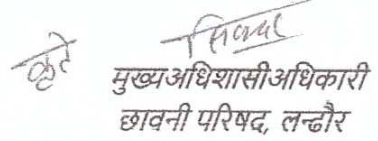 कृते
मुख्य अधिशासी अधिकारी
छावनी परिषद, लन्ढौर